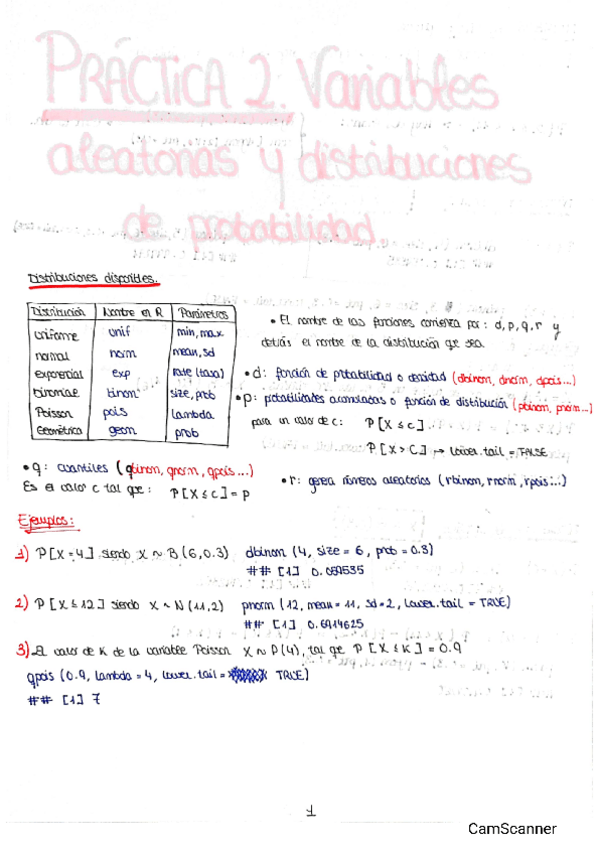 PRÁCTICA 2. Variables
aleatorias y distribuciones
de probabilidad.
Distribuciones disponibles.
Distribución | Nombre en R | Parámetros
Uniforme | unif | min, max
normal | norm | mean, sd
exponencial | exp | rate (tasa)
binomial | binom | size, prob
Poisson | pois | lambda
Geométrica | geom | prob
• El nombre de las funciones comienza por: d, p, q, r y
detrás el nombre de la distribución que sea.
• d: función de probabilidad o densidad (dbinom, dnorm, dpois...)
• p: probabilidades acumuladas o función de distribución (pbinom, pnorm...)
para un valor de c: P[X ≤ c]
P[X > C] → lower.tail = FALSE
• q: cuantiles (qbinom, qnorm, qpois...)
Es el valor c tal que: P[X ≤ c] = p
• r: genera números aleatorios (rbinom, rnorm, rpois...)
Ejemplos:
1) P[X = 4] siendo X ~ B(6, 0.3) dbinom (4, size = 6, prob = 0.3)
## [1] 0.059535
2) P[X ≤ 12] siendo X ~ N(11,2) pnorm (12, mean = 11, sd = 2, lower.tail = TRUE)
## [1] 0.6914625
3) El valor de K de la variable Poisson X ~ P(4), tal que P[X ≤ K] = 0.9
qpois (0.9, lambda = 4, lower.tail = TRUE)
## [1] 7
1
CamScanner